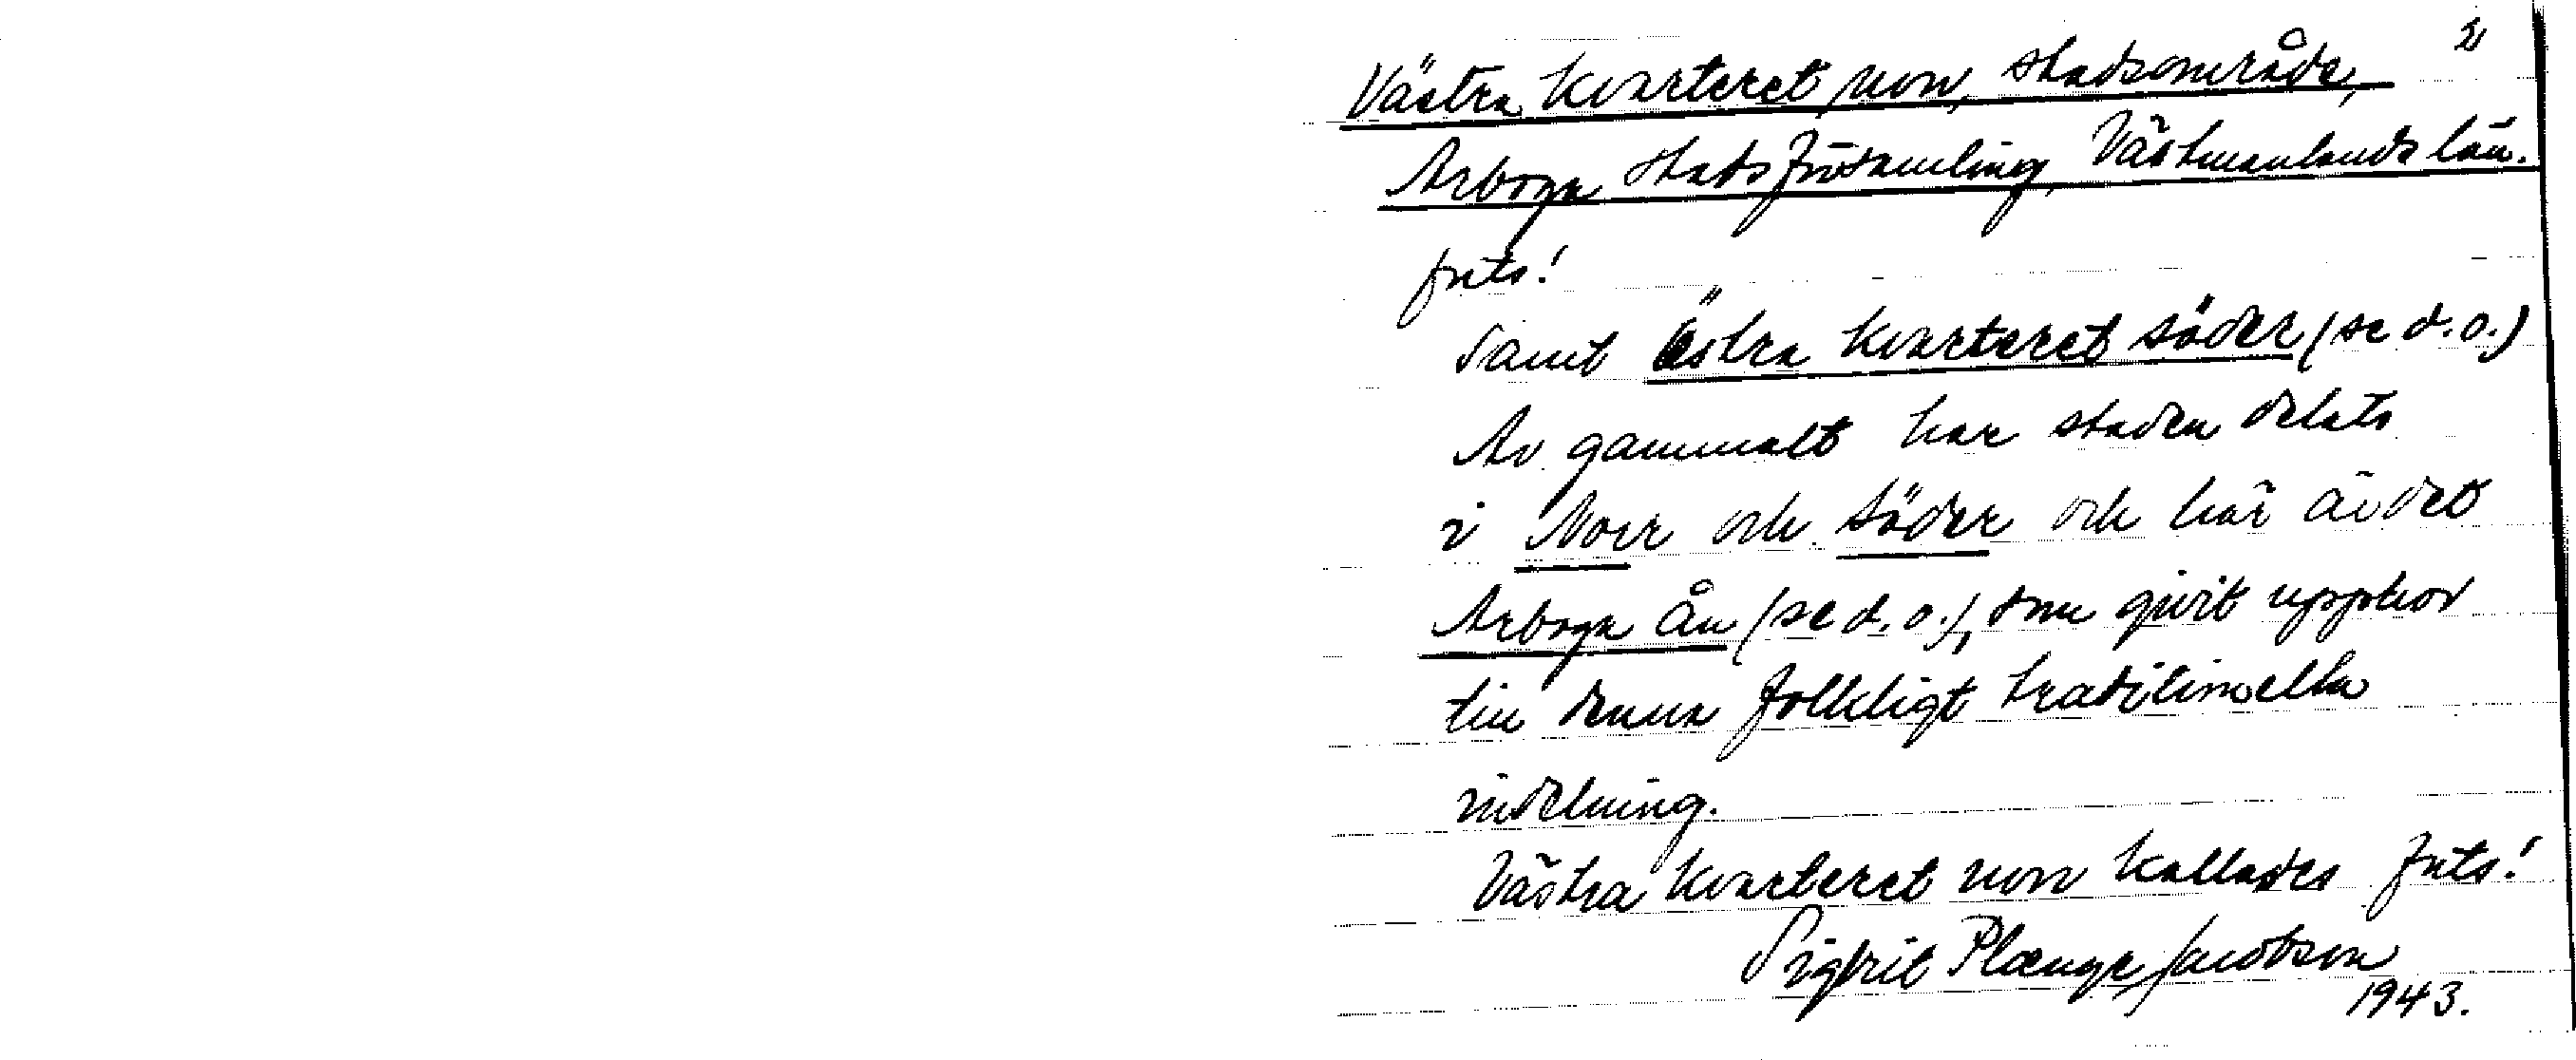 2)
Västra Kvarteret norr, stadsområde,
Arboga stadsförsamling, Västmanlands län.
forts!
samt Östra Kvarteret söder (se d.o.)
Av gammalt har staden delats
i Norr och Söder och här är det
Arboga ån (se d.o.), som givit upphov
till denna folkligt traditionella
indelning.
Västra Kvarteret norr kallades forts!
Sigbrit Plænge Jacobson
1943.